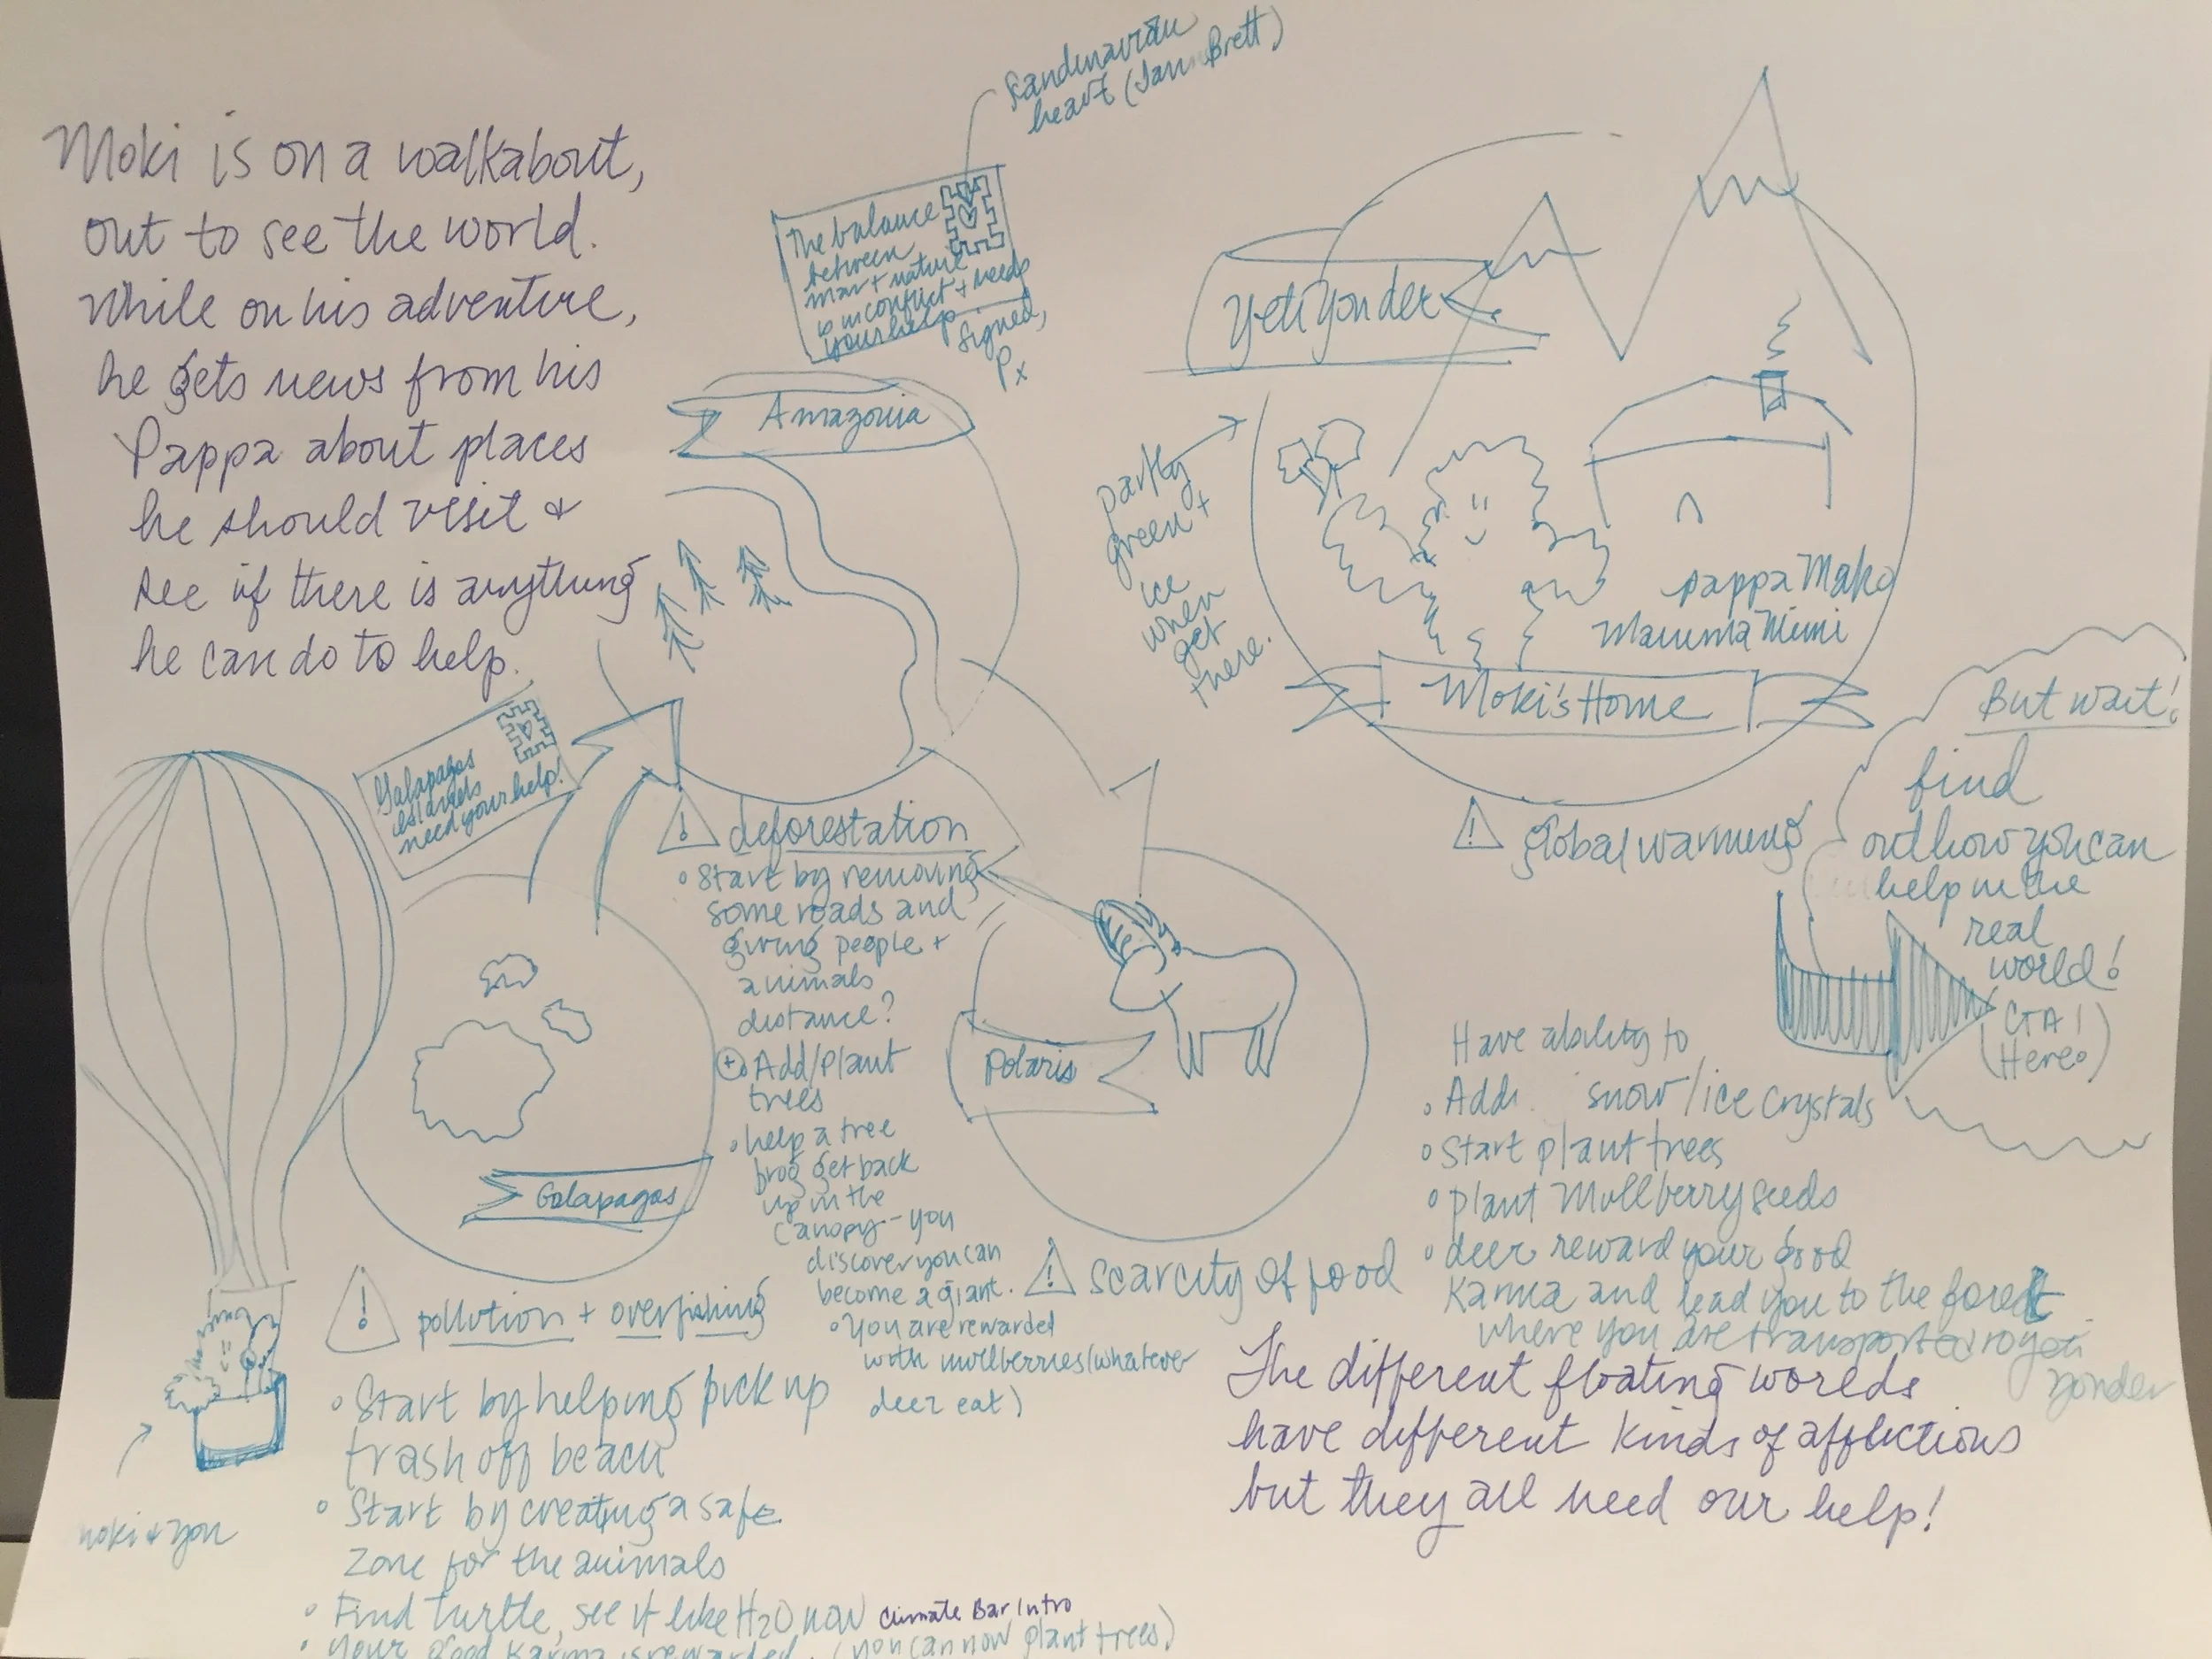 Moki is on a walkabout,
out to see the world.
While on his adventure,
he gets news from his
Pappa about places
he should visit +
see if there is anything
he can do to help.
Scandinavian
heart (Jan Brett)
The balance
between
man + nature
is in conflict + needs
your help
Signed,
Px
Amazonia
Yeti Yonder
partly
green +
ice
when
get
there.
pappa Mako
Mamma Mimi
Moki's Home
Galapagos
islands
need your help!
! deforestation
• Start by removing
some roads and
giving people +
animals
distance?
+ Add/plant
trees
• help a tree
frog get back
up in the
canopy - you
discover you can
become a giant.
• You are rewarded
with mullberries (whatever
deer eat)
! global warming
But wait!
find
out how you can
help in the
real
world!
(CTA!
Here.)
Polaris
Galapagos
! scarcity of food
Have ability to
• Add snow/ice crystals
• Start plant trees
• plant Mullberry seeds
• deer reward your good
Karma and lead you to the forest
where you are transported to yeti
yonder
! pollution + overfishing
• Start by helping pick up
trash off beach
• Start by creating a safe
zone for the animals
• Find turtle, see it like H2O now Climate Bar Intro
• Your good karma is rewarded. (you can now plant trees)
moki & you
The different floating worlds
have different kinds of afflictions
but they all need our help!